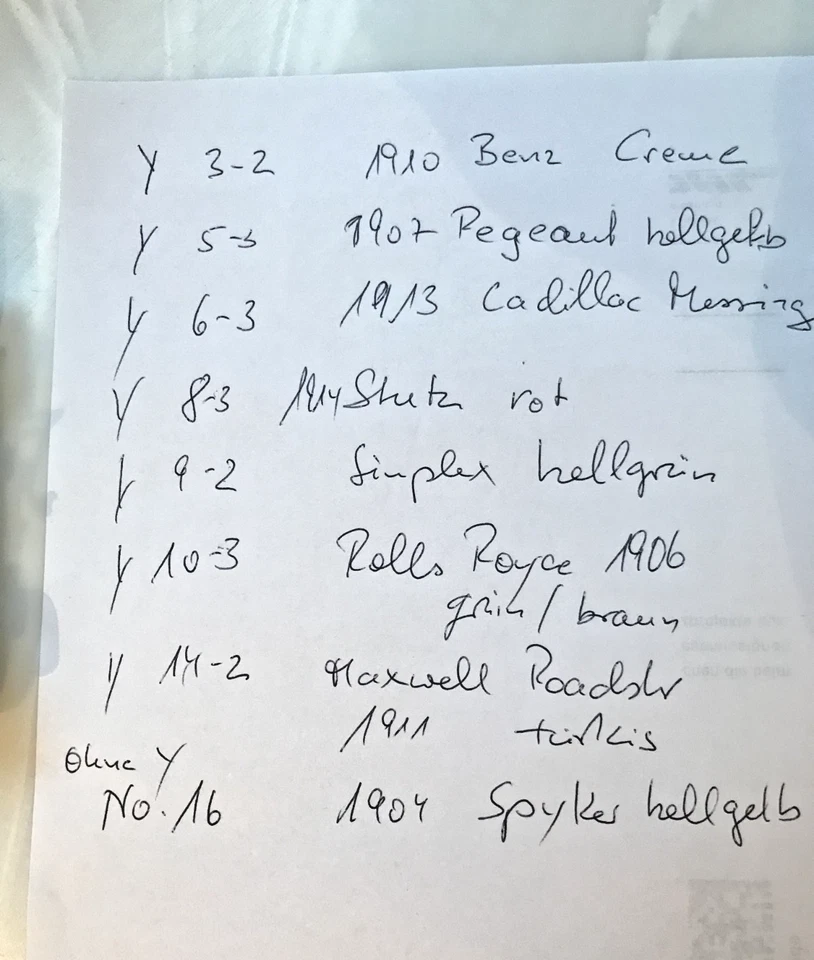 Y 3-2 1910 Benz Creme
Y 5-3 1907 Pegeaut hellgelb
Y 6-3 1913 Cadillac Messing
Y 8-3 1914 Stutz rot
Y 9-2 Simplex hellgrün
Y 10-3 Rolls Royce 1906
grün / braun
Y 14-2 Maxwell Roadstr
1911 türkis
Ohne Y
No. 16 1904 Spyker hellgelb